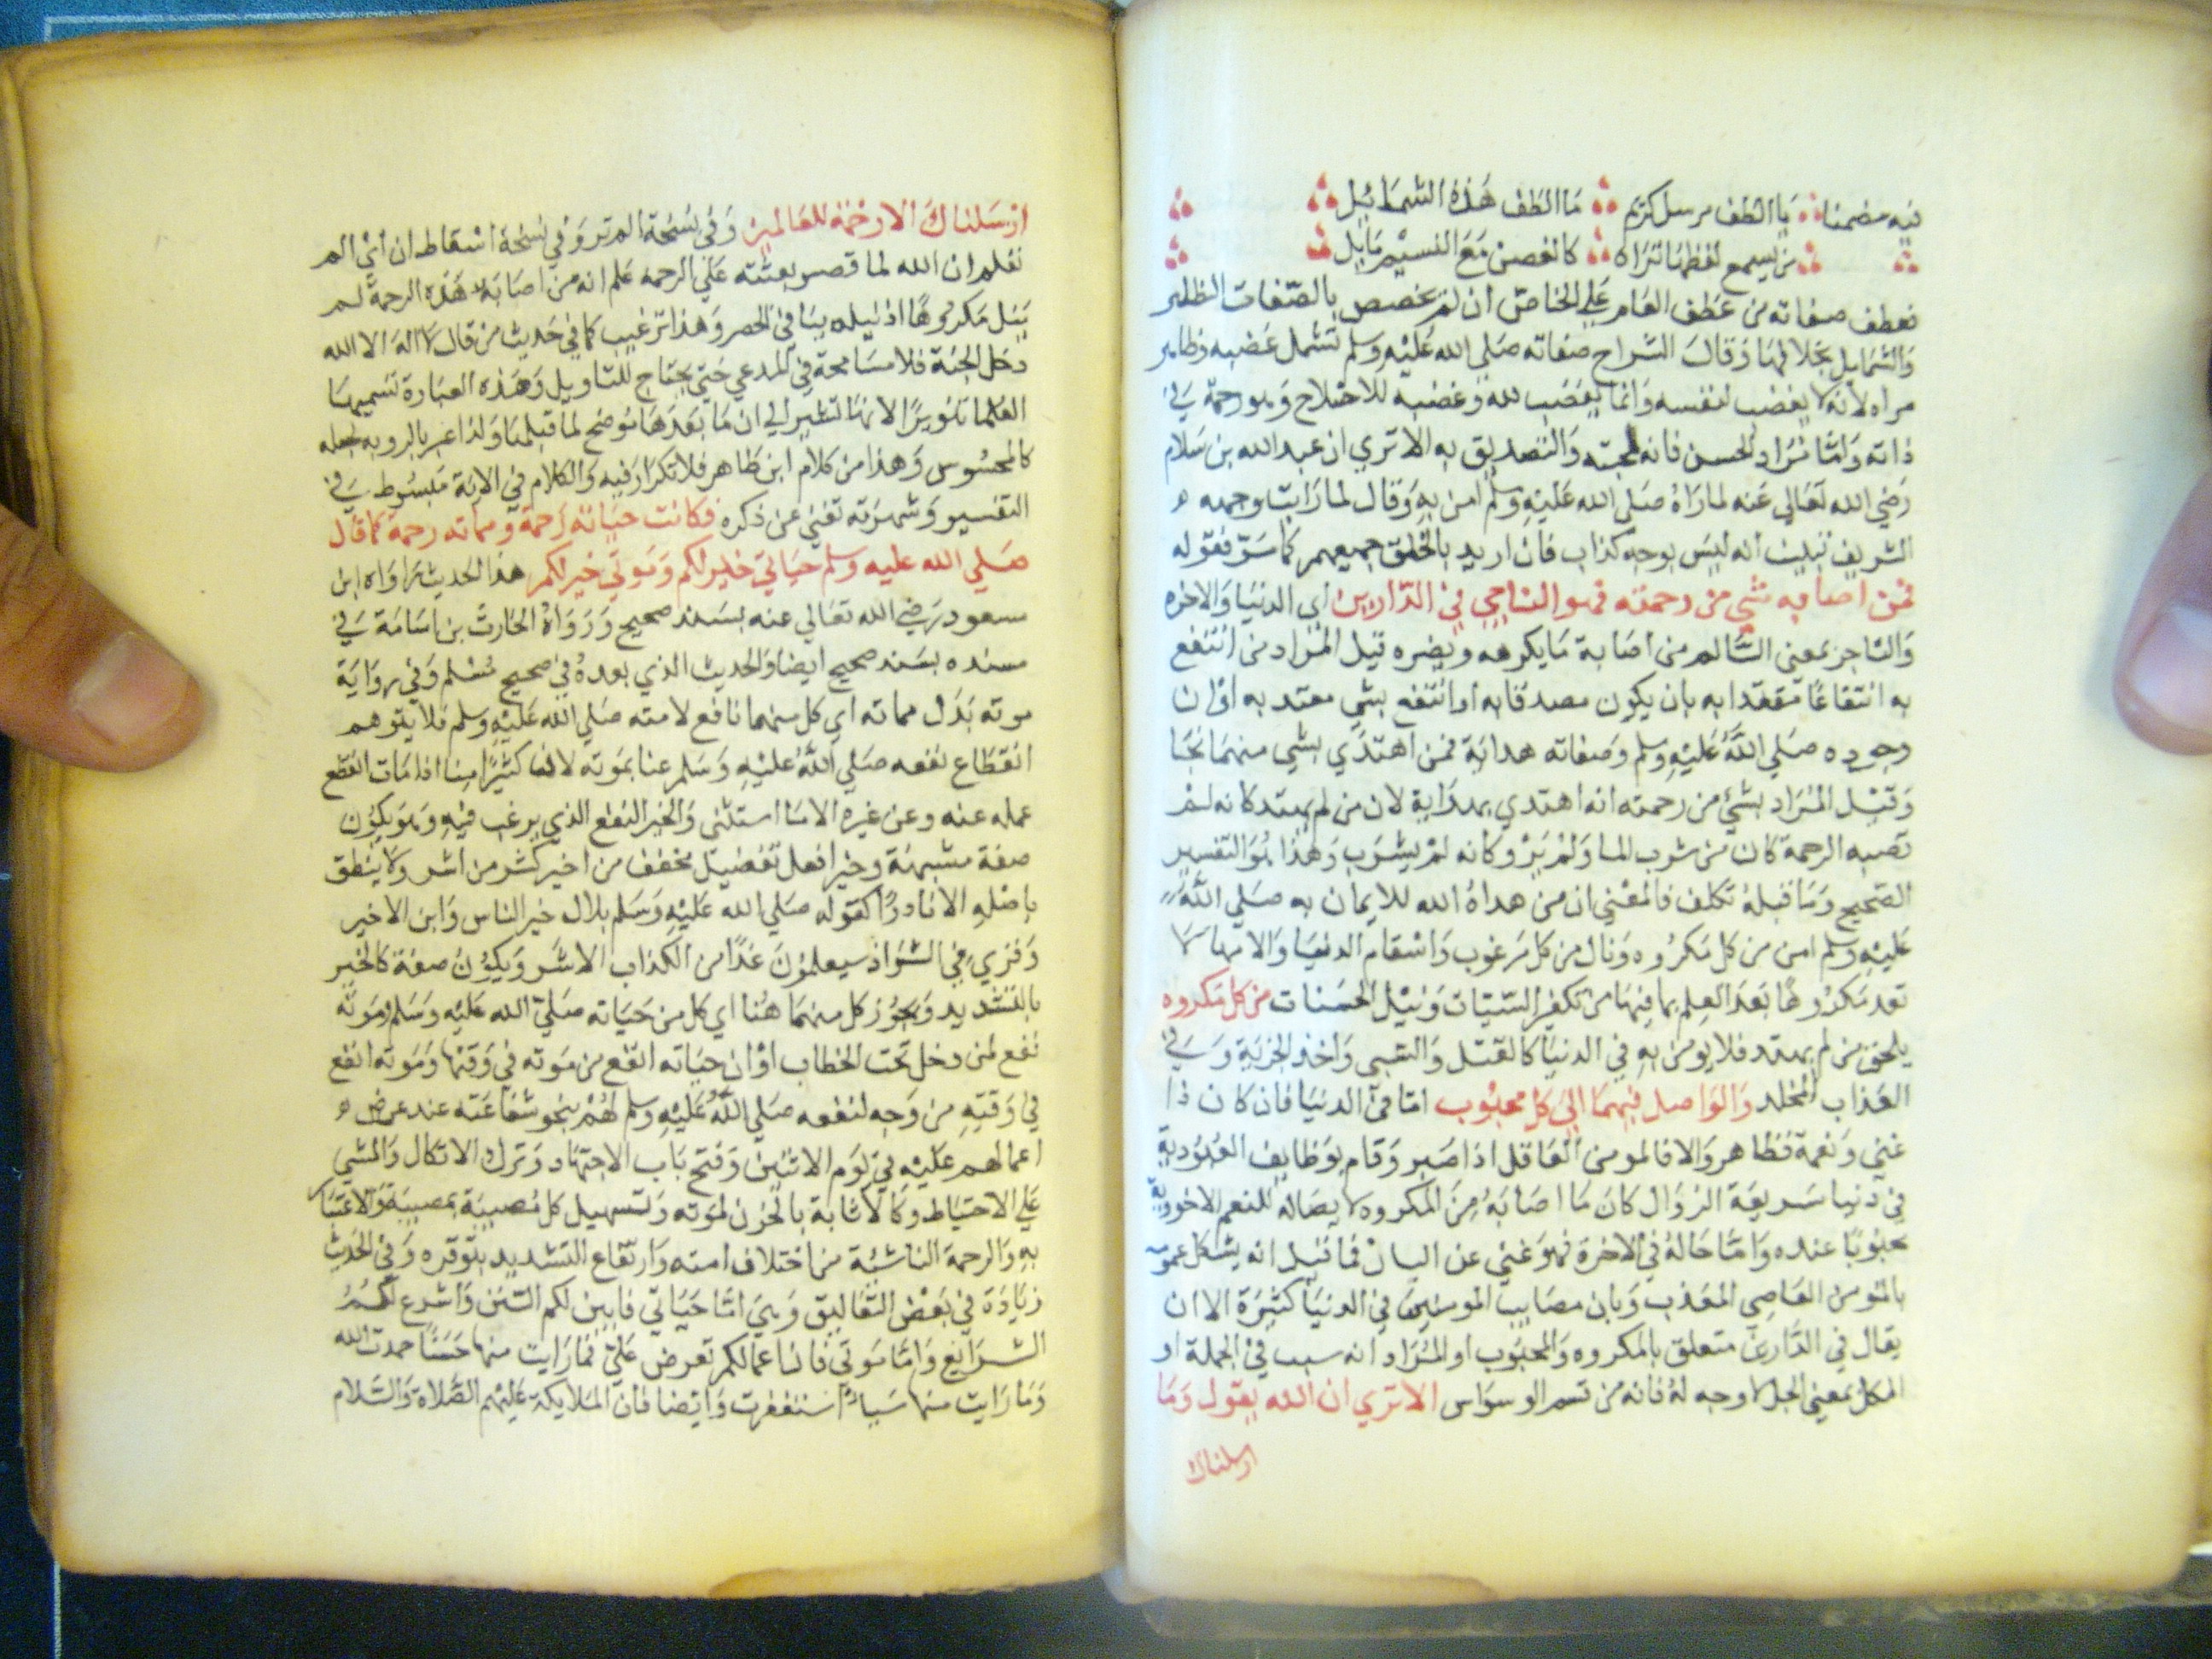 فيه مضمنا يا الطف مرسل كريم ما الطف هذه الشمائل
من يسمع لفظها تراه كالغصن مع النسيم مايل
فعطف صفاته من عطف العام على الخاص ان لم تخصص بالصفات الظاهر
والشمايل بخلافها وقال الشراح صفاته صلي الله عليه وسلم تشمل غضبه وظاهر
مراه لانه لا يغضب لنفسه وانما يغضب لله وغضبه للاصلاح وهو رحمة في
ذاته واما الحسن فانه لمحبته والتصديق به الا تري ان عبد الله بن سلام
رضي الله تعالي عنه لما راه صلي الله عليه وسلم امن به وقال لما رايت وجهه
الشريف تبينت انه ليس بوجه كذاب فان اريد بالخلق جميعهم كما سر فقوله
فمن اصابه شي من رحمته فهو الناجي في الدارين اي الدنيا والاخره
والناجي بمعني السالم من اصابة ما يكرهه ويضره قيل المراد من انتفع
به انتفاعا معتدا به بان يكون مصدقا به او انتفع بشي معتد به او ان
وجوده صلي الله عليه وسلم وصفاته هداية فمن اهتدي بشي منهما نجا
وقيل المراد بشي من رحمته انه اهتدي بهداية لان من لم يهتد كانه لم
تصبه الرحمة كان من شرب الما ولم يرو كانه لم يشرب وهذا هو التفسير
الصحيح وما قبله تكلف فالمعني ان من هداه الله للايمان به صلي الله
عليه وسلم امن من كل مكروه ونال من كل مرغوب واسقام الدنيا والامها لا
تعد مكروها بعد العلم بما فيها من تكفير السيئات ونيل الحسنات من كل مكروه
يلحق من لم يهتد فلا يومن به في الدنيا كالقتل والسبي واخذ الجزية وفي
العذاب المخلد والواصل فيهما الي كل محبوب اما في الدنيا فان كان ذا
غني ونعمة فظاهر والا فالمومن العاقل اذا صبر وقام بوظايف العبودية
في دنيا سريعة الزوال كان ما اصابه من المكروه لايصاله للنعم الاخروية
محبوبا عنده واما حاله في الاخرة فهو غني عن البيان فما قيل انه يشكل عمومه
بالمومن العاصي المعذب وبان مصايب المومنين في الدنيا كثيرة الا ان
يقال في الدارين متعلق بالمكروه والمحبوب او المراد انه سبب في الجملة او
الكل بمعني الجل لا وجه له فانه من قسم الوسواس الا تري ان الله يقول وما
ارسلناك
ارسلناك الا رحمة للعالمين وفي نسخة الم تر وفي نسخة اسقاط ان اي الم
تعلم ان الله لما قصر بعثته علي الرحمة علم انه من اصابه هذه الرحمة لم
ينل مكروها اذ نيله ينافي الحصر وهذا ترغيب كما في حديث من قال لا اله الا الله
دخل الجنة فلا مسامحة في المدعي حتي يحتاج للتاويل وهذه العبارة تسميها
العلما تنويرا لانها تشير الي ان ما بعدها موضح لما قبلها ولذا عبر بالرويه لجعله
كالمحسوس وهذا من كلام ابن طاهر فلا تكرار فيه والكلام في الاية مبسوط في
التفسير وشهرته تغني عن ذكره فكانت حياته رحمة ومماته رحمة كما قال
صلي الله عليه وسلم حياتي خير لكم وموتي خير لكم هذا الحديث رواه ابن
مسعود رضي الله تعالي عنه بسند صحيح ورواه الحارث بن اسامة في
مسنده بسند صحيح ايضا والحديث الذي بعده في صحيح مسلم وفي رواية
موته بدل مماته اي كل منهما نافع لامته صلي الله عليه وسلم فلا يتوهم
انقطاع نفعه صلي الله عليه وسلم عنا بموته لان كثيرا منا اذا مات انقطع
عمله عنه وعن غيره الا ما استثني والخير النفع الذي يرغب فيه وهو يكون
صفة مشبهة وخير افعل تفضيل مخفف من اخير كشر من اشر ولا ينطق
باصله الا نادرا كقوله صلي الله عليه وسلم بلال خير الناس وابن الاخير
وقري في الشواذ سيعلمون غدا من الكذاب الاشر ويكون صفة كالخير
بالتشديد ويجوز كل منهما هنا اي كل من حياته صلي الله عليه وسلم وموته
نفع لمن دخل تحت الخطاب او ان حياته انفع من موته في وقتها وموته انفع
في وقته من وجه لنفعه صلي الله عليه وسلم لهم بنحو شفاعته عند عرض
اعمالهم عليه في يوم الاثنين وفتح باب الاجتهاد وترك الاتكال والمشي
علي الاحتياط وكالاثابة بالحزن لموته وتسهيل كل مصيبة بمصيبته والاعتنا
به والرحمة الناشئة من اختلاف امته وارتفاع التشديد بتوقره وفي الحديث
زيادة في بعض التعاليق وهي اما حياتي فابين لكم السنن واشرع لكم
الشرايع واما موتي فان اعمالكم تعرض علي فما رايت منها حسنا حمدت الله
وما رايت منها سيا استغفرت وايضا فان الملايكة عليهم الصلاة والسلام